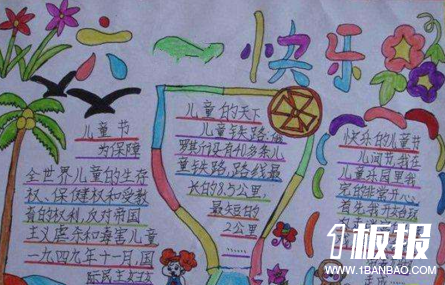 六一快乐
儿童节
为保障
全世界儿童的生存
权、保健权和受教
育的权利,反对帝国
主义虐杀和毒害儿童
一九四九年十一月,国
际民主
儿童的天下
儿童铁路:俄
罗斯设有40多条儿
童铁路,路线最
长的8.5公里,
最短的
2公里
快乐的儿童节
儿间节,我在
儿童乐园里我
完的非常开心,
首先我
1板报
WWW.1BANBAO.COM